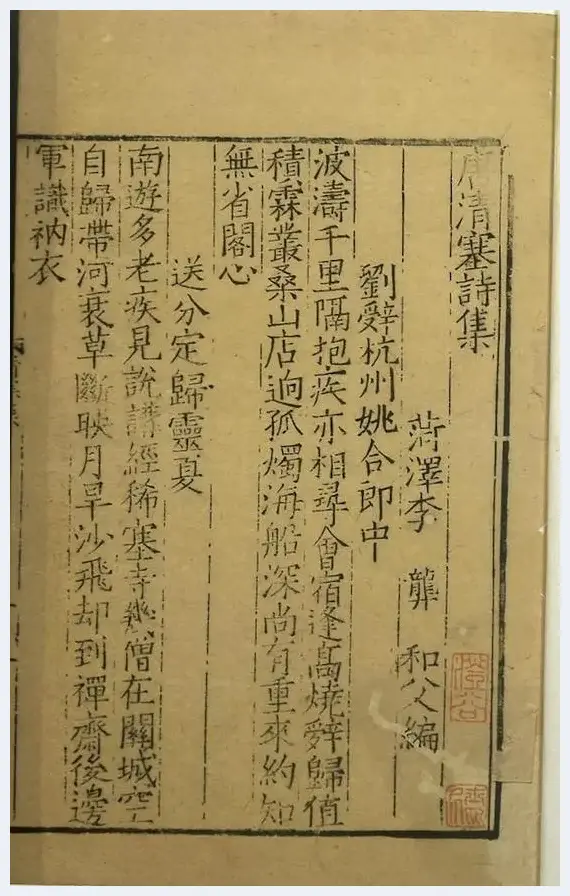 唐清塞詩集
菏澤李龏和父編
劉辤杭州姚合郎中
波濤千里隔抱疾亦相尋會宿逢高燒辤歸值
積霖叢桑山店逈孤燭海船深尚有重來約知
無省閣心
送分定歸靈夏
南遊多老疾見說講經稀塞寺幾僧在關城空
自歸帶河衰草斷映月旱沙飛却到禪齋後邊
軍識衲衣